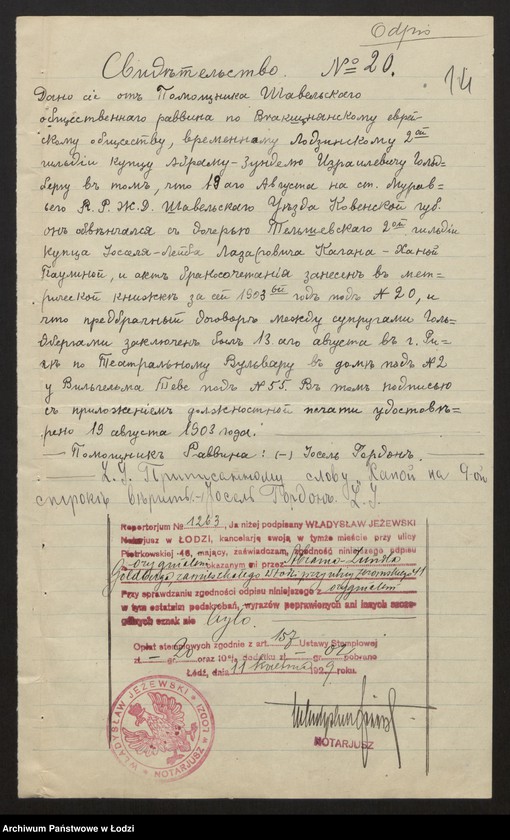 Odpis
14
Свидѣтельство. № 20.
Дано сіе отъ Помощника Шавельскаго
общественнаго раввина по Векшнянскому еврей-
скому обществу, временному Лодзинскому 2ой
гильдіи купцу Абраму-Зунделю Израилевичу Голь-
бергу въ томъ, что 19аго Августа на ст. Мурав-
ьево Л.Р.Ж.Д. Шавельскаго Уѣзда Ковенской губ.
онъ обвѣнчался съ дочерью Тельшевскаго 2ой гильдіи
купца Іоселя-Лейба Лазаровича Кагана - Ханой
Паулиной, и актъ бракосочетанія занесенъ въ мет-
рической книжкѣ за сей 1903ый годъ подъ № 20, и
что предбрачный договоръ между супругами Голь-
дбергами заключенъ былъ 13. аго августа въ г. Ри-
гѣ по Театральному Бульвару въ домѣ подъ № 2
у Вильгельма подъ № 55. Въ томъ подписью
съ приложеніемъ должностной печати удостовѣ-
рено 19 августа 1903 года.
Помощникъ Раввина: (-) Іосель Гордонъ.
Приписанному слову „Ханой на 9-ой
строкѣ вѣрить - Іосель Гордонъ.
Repertorjum № 1263, Ja niżej podpisany WŁADYSŁAW JEŻEWSKI
Notarjusz w ŁODZI, kancelarję swoją w tymże mieście przy ulicy
Piotrkowskiej 46, mający, zaświadczam, zgodność niniejszego odpisu
z oryginałem okazanym mi przez Abrama-Zundla
Goldberga zamieszkałego w Łodzi przy ulicy Żeromskiego 41
Przy sprawdzaniu zgodności odpisu niniejszego z oryginałem
w tym ostatnim podskrobań, wyrazów poprawionych ani innych szcze-
gólnych oznak nie było.
Opłat stemplowych zgodnie z art. 157 Ustawy Stemplowej
zł. — gr. 20 oraz 10% dodatku zł. — gr. 02 pobrano
Łódź, dnia 11 kwietnia 1929 roku.
NOTARJUSZ
WŁADYSŁAW JEŻEWSKI * W ŁODZI * NOTARJUSZ
Archiwum Państwowe w Łodzi